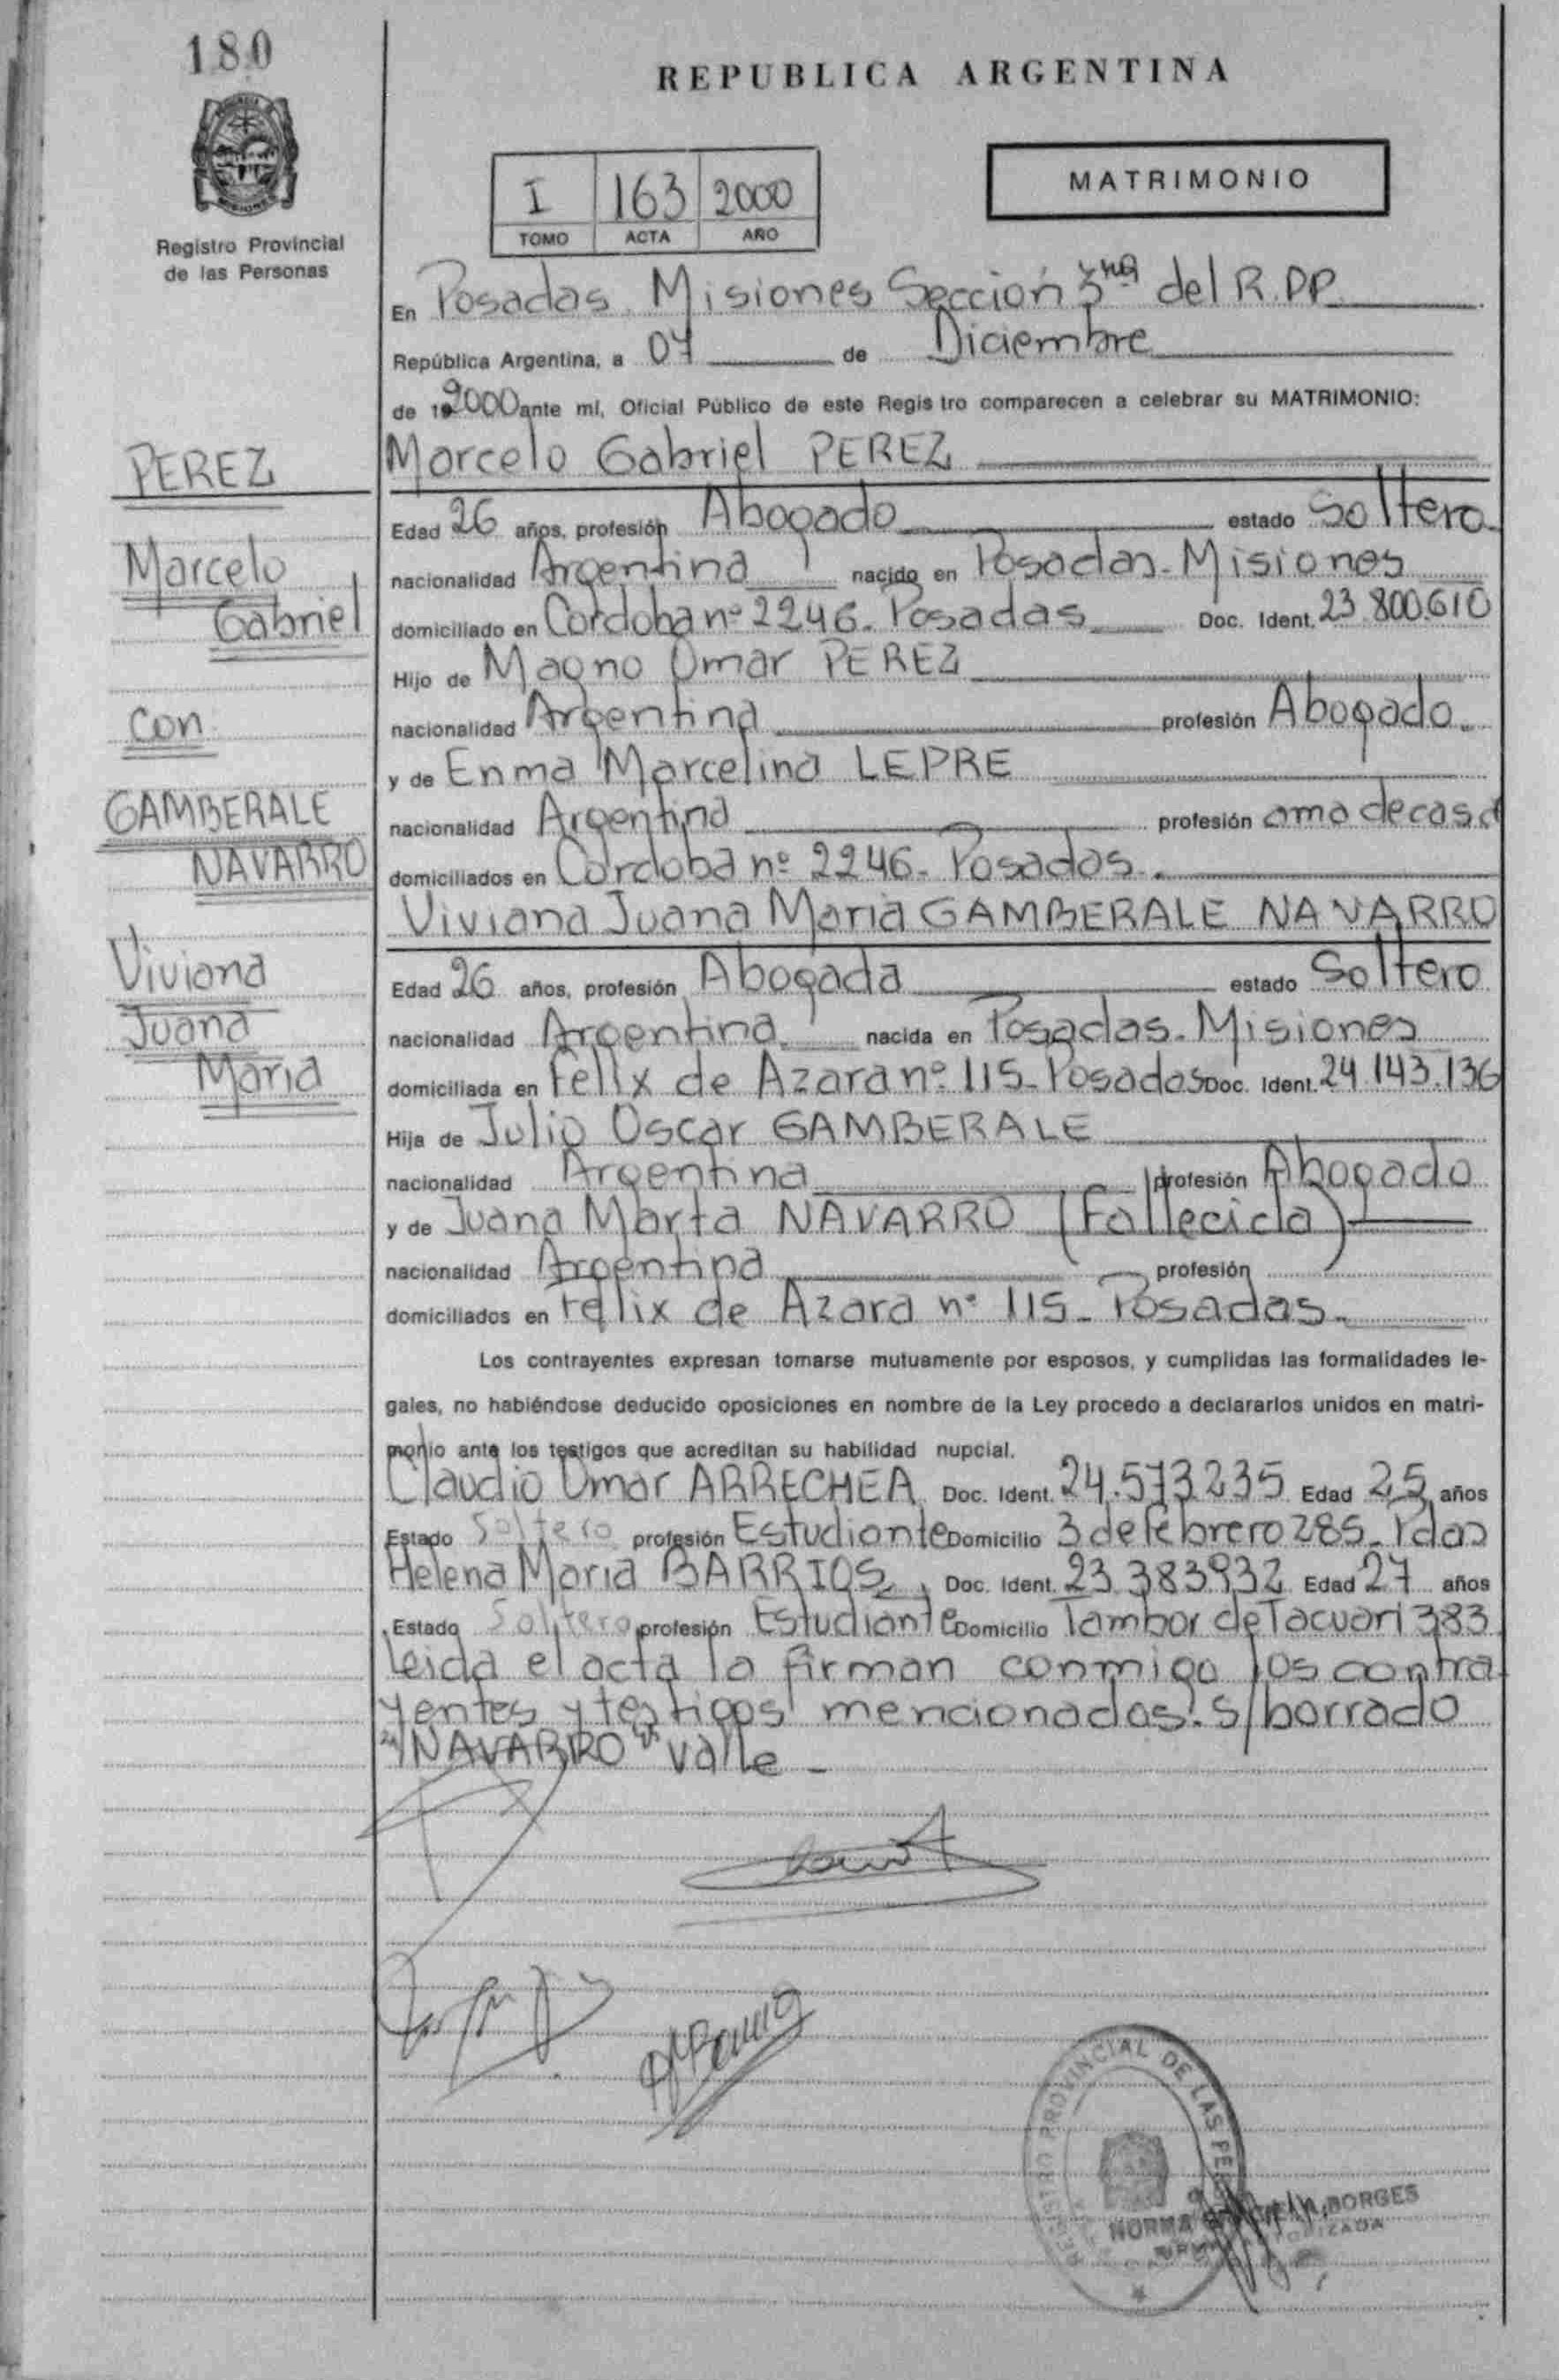 180
REPUBLICA ARGENTINA
MISIONES
Registro Provincial
de las Personas
I 163 2000
TOMO ACTA AÑO
MATRIMONIO
En Posadas Misiones Sección 3ra del R.P.P.
República Argentina, a 07 de Diciembre
de 192000 ante mí, Oficial Público de este Registro comparecen a celebrar su MATRIMONIO:
PEREZ
Marcelo
Gabriel
Con
GAMBERALE
NAVARRO
Viviana
Juana
Maria
Marcelo Gabriel PEREZ
Edad 26 años, profesión Abogado estado Soltero
nacionalidad Argentina nacido en Posadas - Misiones
domiciliado en Cordoba nº 2246 - Posadas Doc. Ident. 23.800.610
Hijo de Magno Omar PEREZ
nacionalidad Argentina profesión Abogado
y de Enma Marcelina LEPRE
nacionalidad Argentina profesión ama de casa
domiciliados en Cordoba nº 2246 - Posadas.
Viviana Juana Maria GAMBERALE NAVARRO
Edad 26 años, profesión Abogada estado Soltero
nacionalidad Argentina nacida en Posadas - Misiones
domiciliada en Felix de Azara nº 115 - Posadas Doc. Ident. 24.143.136
Hija de Julio Oscar GAMBERALE
nacionalidad Argentina profesión Abogado
y de Juana Marta NAVARRO (Fallecida)
nacionalidad Argentina profesión
domiciliados en Felix de Azara nº 115 - Posadas.
Los contrayentes expresan tomarse mutuamente por esposos, y cumplidas las formalidades le-
gales, no habiéndose deducido oposiciones en nombre de la Ley procedo a declararlos unidos en matri-
monio ante los testigos que acreditan su habilidad nupcial.
Claudio Omar ARRECHEA Doc. Ident. 24.573.235 Edad 25 años
Estado Soltero profesión Estudiante Domicilio 3 de febrero 285 - Pdas
Helena Maria BARRIOS, Doc. Ident. 23.383.932 Edad 27 años
Estado Soltero profesión Estudiante Domicilio Tambor de Tacuari 383
Leida el acta la firman conmigo los contra
yentes y testigos mencionados. s/borrado
"NAVARRO" Valle -
REGISTRO PROVINCIAL DE LAS
NORMA BORGES